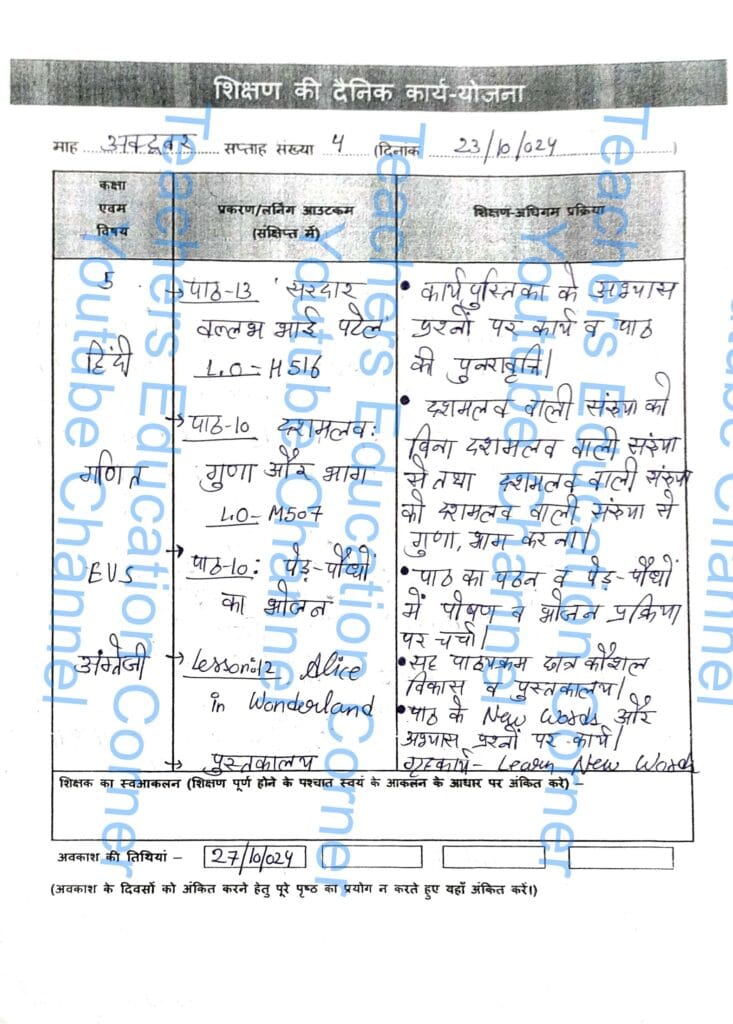 शिक्षण की दैनिक कार्य-योजना
माह ....अक्टूबर.... सप्ताह संख्या 4 (दिनांक 23/10/024)
कक्षा एवम विषय
प्रकरण/लर्निंग आउटकम (संक्षिप्त में)
शिक्षण-अधिगम प्रक्रिया
5
हिंदी
→ पाठ-13 सरदार
वल्लभ भाई पटेल
L.O - H516
• कार्यपुस्तिका के अभ्यास
प्रश्नों पर कार्य व पाठ
की पुनरावृत्ति।
गणित
→ पाठ-10 दशमलव:
गुणा और भाग
L.O- M507
• दशमलव वाली संख्या को
बिना दशमलव वाली संख्या
से तथा दशमलव वाली संख्या
को दशमलव वाली संख्या से
गुणा, भाग करना।
EVS
→ पाठ-10: पेड़-पौधों
का भोजन
• पाठ का पठन व पेड़-पौधों
में पोषण व भोजन प्रक्रिया
पर चर्चा।
अंग्रेजी
→ Lesson:12 Alice
in Wonderland
→ पुस्तकालय
• सह पाठ्यक्रम छात्र कौशल
विकास व पुस्तकालय।
• पाठ के New Words और
अभ्यास प्रश्नों पर कार्य।
गृहकार्य- Learn New Words
शिक्षक का स्वआकलन (शिक्षण पूर्ण होने के पश्चात स्वयं के आकलन के आधार पर अंकित करे) –
अवकाश की तिथियां – 27/10/024
(अवकाश के दिवसों को अंकित करने हेतु पूरे पृष्ठ का प्रयोग न करते हुए यहाँ अंकित करें।)
Teachers Education Corner
Youtabe Channel
Teachers Education Corner
Youtube Channel
Teachers Education Corner
Youtabe Channel